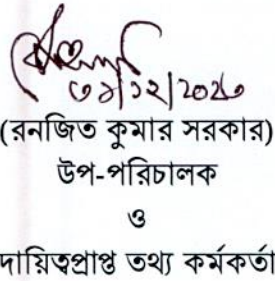 ৩১/১২/২০২৩
(রনজিত কুমার সরকার)
উপ-পরিচালক
ও
দায়িত্বপ্রাপ্ত তথ্য কর্মকর্তা